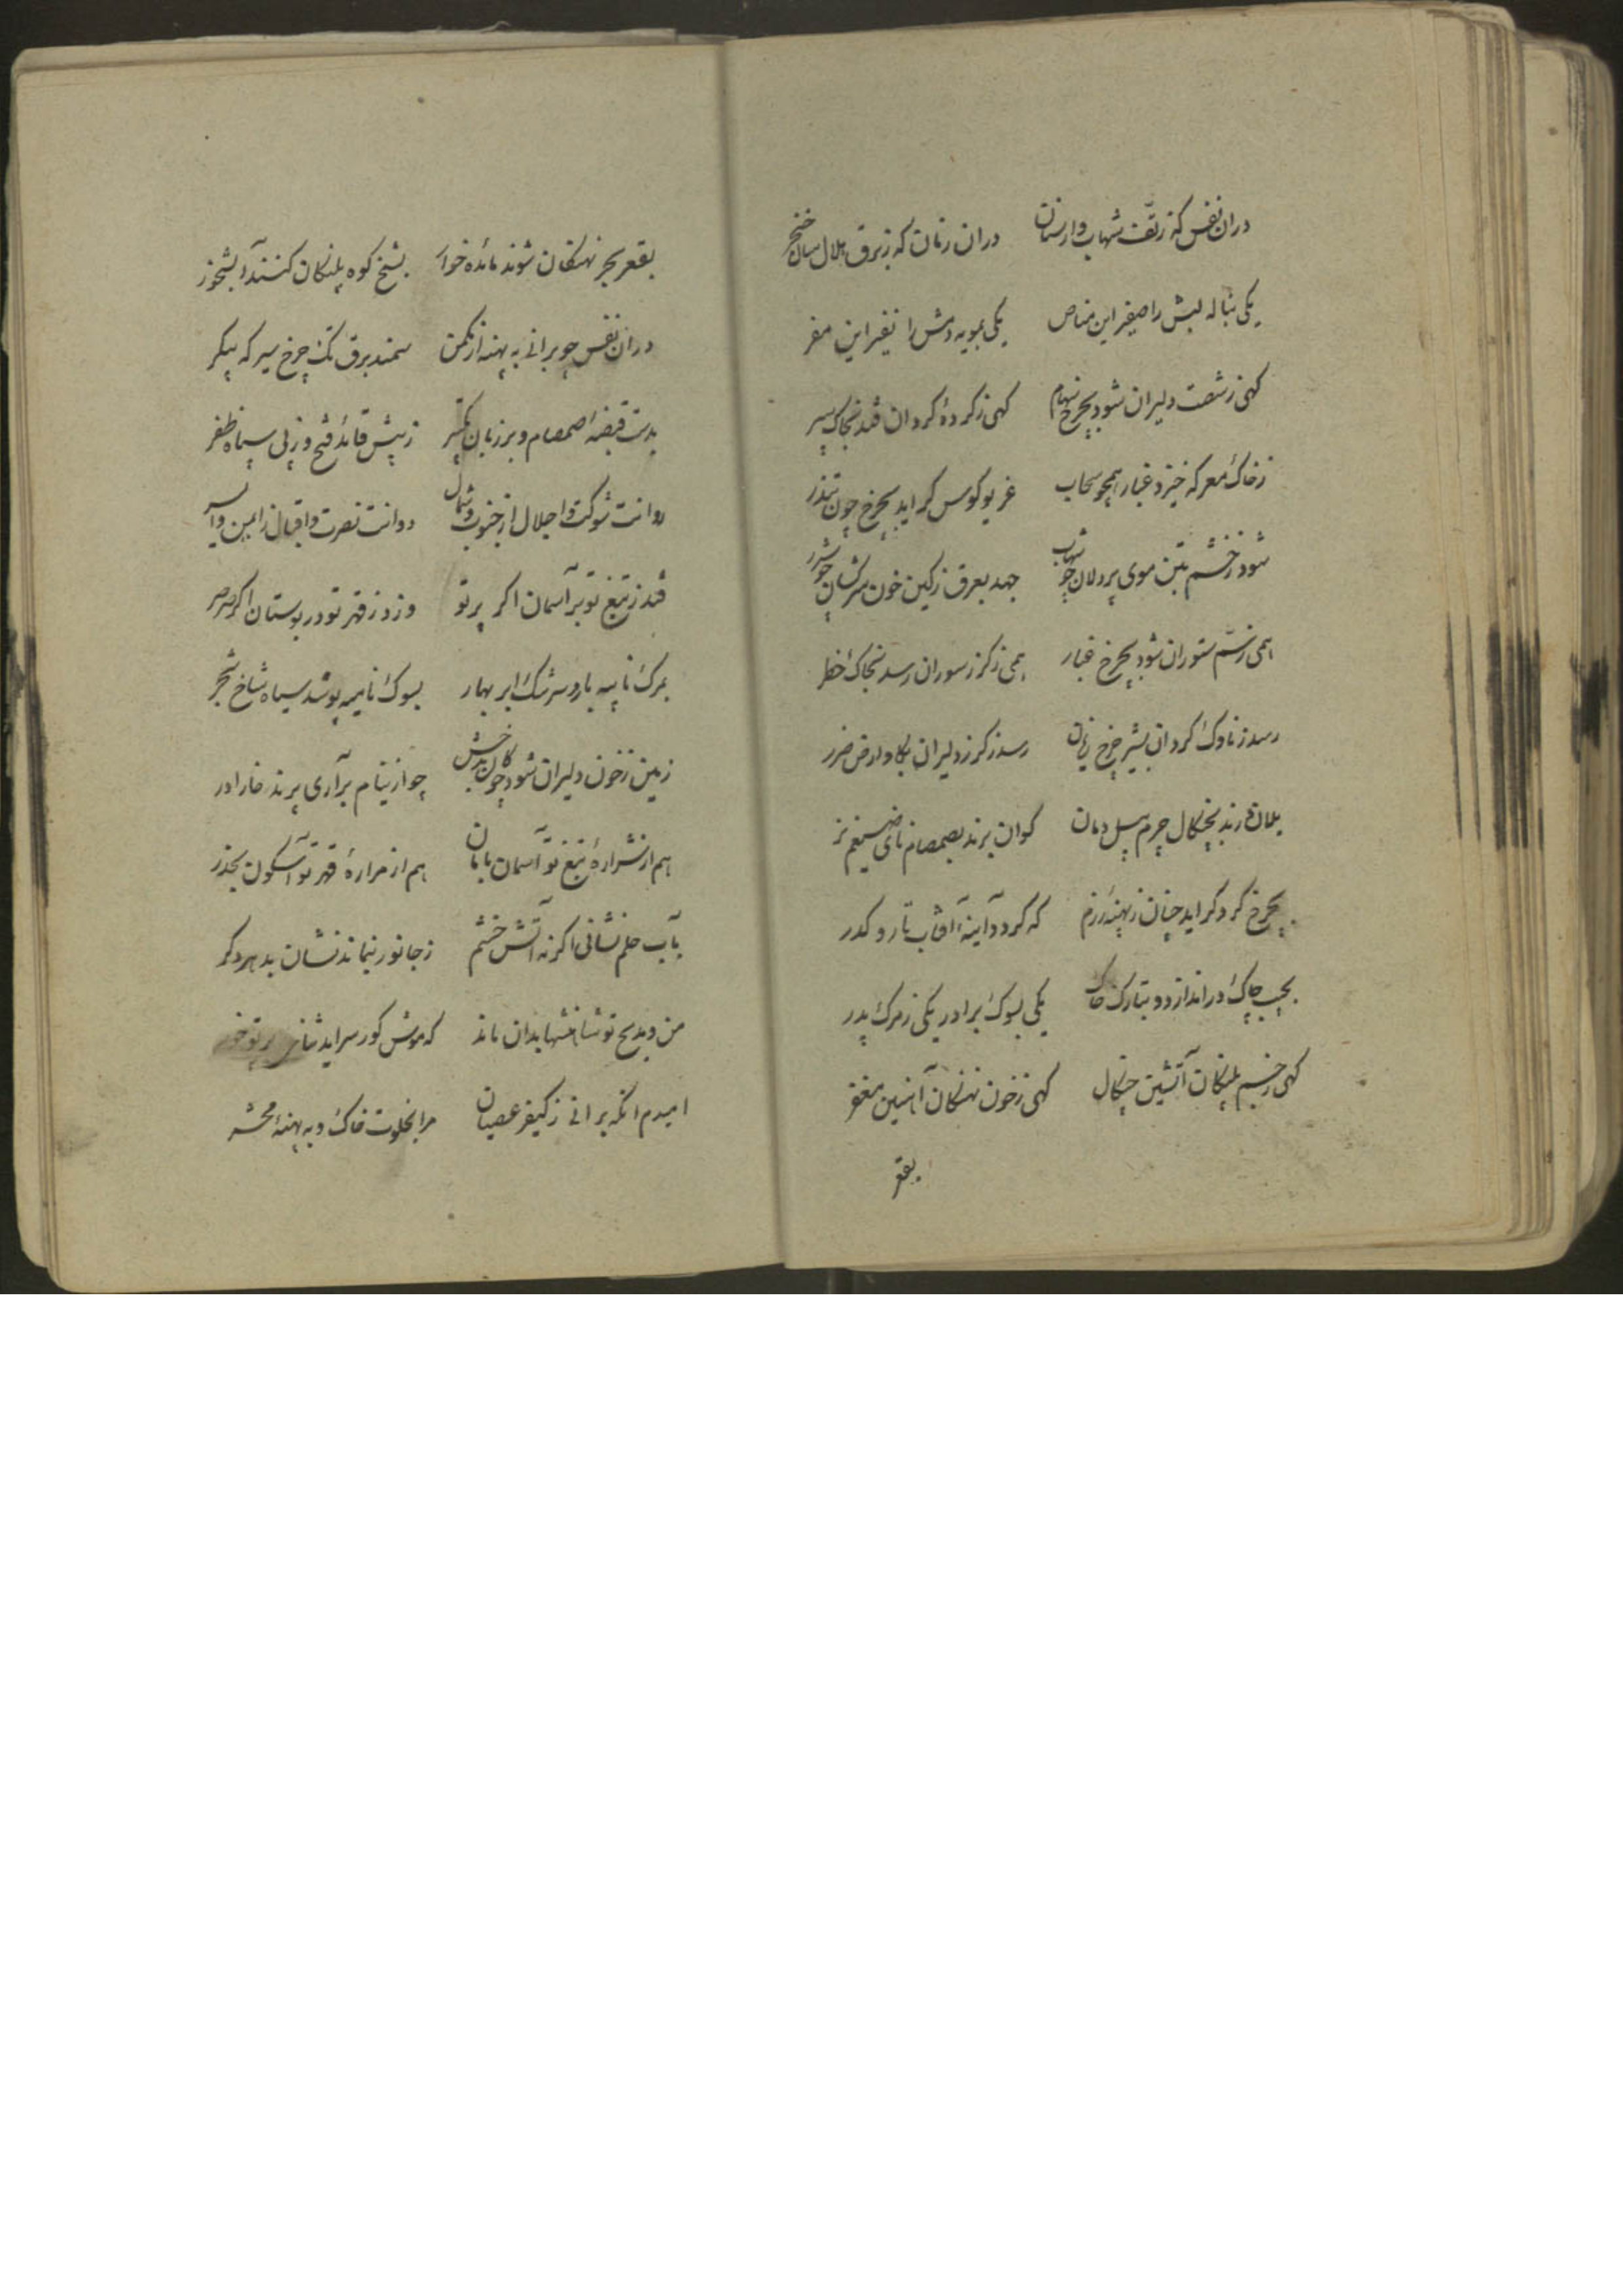 دران نفس که زتف شهاب وار سنان دران زمان که ز برق هلال سان خنجر
یکی بناله لبش را صفیر این مناص یکی بمویه دمش را نفیر این مفر
کهی ز شصت دلیران شود بچرخ سهام کهی ز کرده کردان فتد بخاک سپر
ز خاک معرکه خیزد غبار همچو سحاب غریو کوس کراید بچرخ چون تندر
شود ز خشم بتن موی پردلان چو شهاب جهد بعرق ز کین خون سرکشان چو شرر
همی ز سم ستوران شود بچرخ غبار همی ز کرز سوران رسد بخاک خطر
رسد ز ناوک کردان بشیر چرخ زیان رسد ز کرز دلیران بکاو ارض ضرر
یلان درند بچنکال چرم پیل دمان کوان برند بصمصام نای ضیغم نر
بچرخ کرد کراید چنان ز پهنه رزم که کردد آینه آفتاب تار و کدر
بجیب چاک در اندازد و بتارک خاک یکی بسوک برادر یکی ز مرک پدر
کهی ز خیم پلنکان آتشین چنکال کهی ز خون نهنکان آهنین مغفر
بقعر
بقعر بحر نهنکان شوند مائده خوار بشخ کوه پلنکان کنند آبشخور
دران نفس چو برانی به پهنه از مکمن سمند برق تک چرخ سیر که پیکر
بدست قبضه صمصام و بر زبان تکبیر ز پیش قائد فتح و ز پی سپاه ظفر
روانت شوکت و اجلال از جنوب و شمال دوانت نصرت و اقبال ز ایمن و ایسر
فتد ز تیغ تو بر آسمان اکر پرتو وزد ز قهر تو در بوستان اکر صرصر
بمرک نامیه بارد سرشک ابر بهار بسوک نامیه پوشد سیاه شاخ شجر
زمین ز خون دلیران شود چو کان بدخش چو از نیام برآری پرند خارا در
هم از شراره تیغ تو آسمان بامان هم از مراره قهر تو آسکون بحذر
بآب حلم نشانی اکر نه آتش خشم ز جانور نماند نشان بدهر دکر
من و مدیح تو شاهنشها بدان ماند که موش کور سراید ثنای پرتو خور
امیدم آنکه برانی ز کیفر عصیان مرا بخلوت خاک و به پهنه محشر